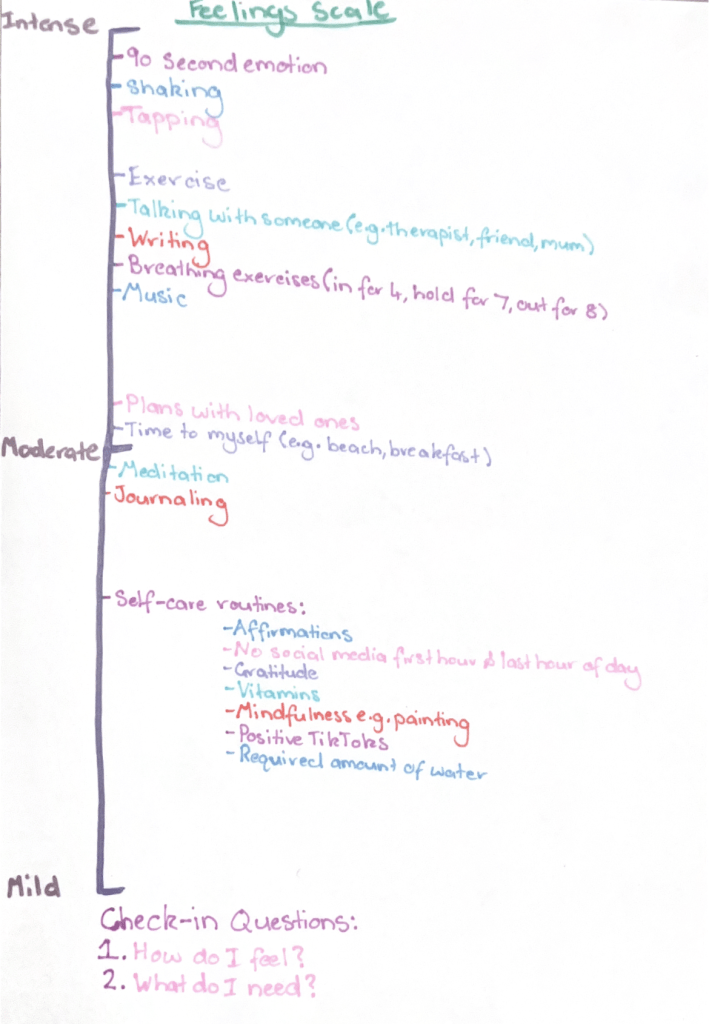 Feelings Scale
Intense
-90 second emotion
-Shaking
-Tapping
-Exercise
-Talking with someone (e.g. therapist, friend, mum)
-Writing
-Breathing exercises (in for 4, hold for 7, out for 8)
-Music
-Plans with loved ones
-Time to myself (e.g. beach, breakfast)
Moderate
-Meditation
-Journaling
-Self-care routines:
-Affirmations
-No social media first hour & last hour of day
-Gratitude
-Vitamins
-Mindfulness e.g. painting
-Positive TikToks
-Required amount of water
Mild
Check-in Questions:
1. How do I feel?
2. What do I need?